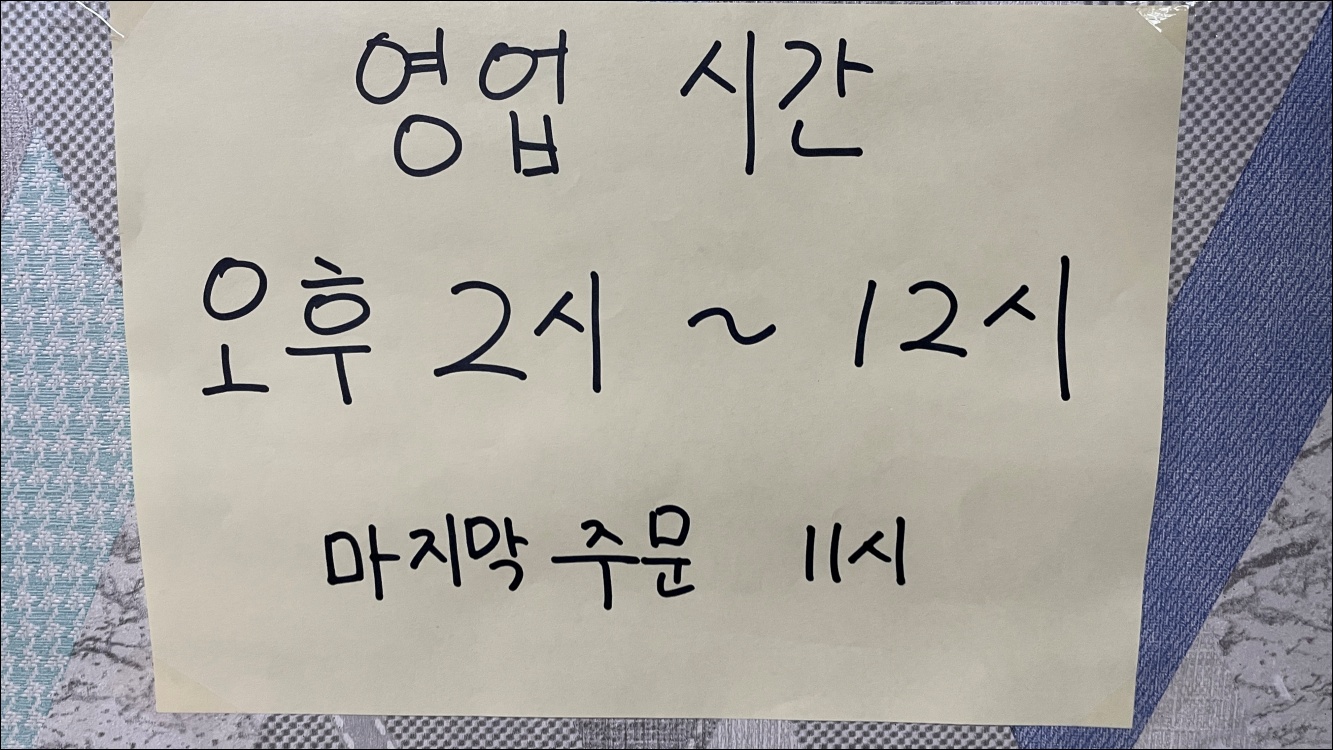 영업 시간
오후 2시 ~ 12시
마지막 주문 11시